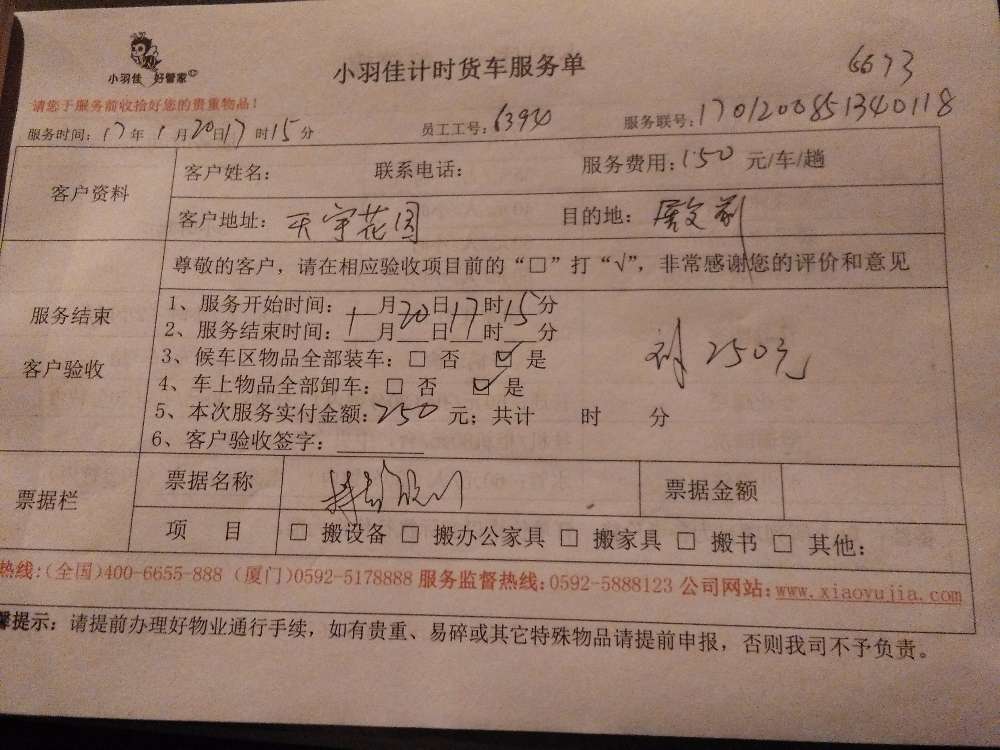 小羽佳 好管家
小羽佳计时货车服务单
6673
请您于服务前收拾好您的贵重物品！
服务时间：17年1月20日17时15分 员工工号：63940 服务联号：1701200851340118
客户资料
客户姓名： 联系电话： 服务费用：150 元/车/趟
客户地址：天宇花园 目的地：
服务结束
客户验收
尊敬的客户，请在相应验收项目前的“□”打“√”，非常感谢您的评价和意见
1、服务开始时间：1月20日17时15分
2、服务结束时间：__月__日__时__分
3、候车区物品全部装车：□ 否 ☑ 是
4、车上物品全部卸车：□ 否 ☑ 是
5、本次服务实付金额：250 元；共计 时 分
6、客户验收签字：
250元
票据栏
票据名称
票据金额
项 目
□ 搬设备 □ 搬办公家具 □ 搬家具 □ 搬书 □ 其他：
热线：(全国)400-6655-888 (厦门)0592-5178888 服务监督热线：0592-5888123 公司网站：www.xiaoyujia.com
馨提示：请提前办理好物业通行手续，如有贵重、易碎或其它特殊物品请提前申报，否则我司不予负责。